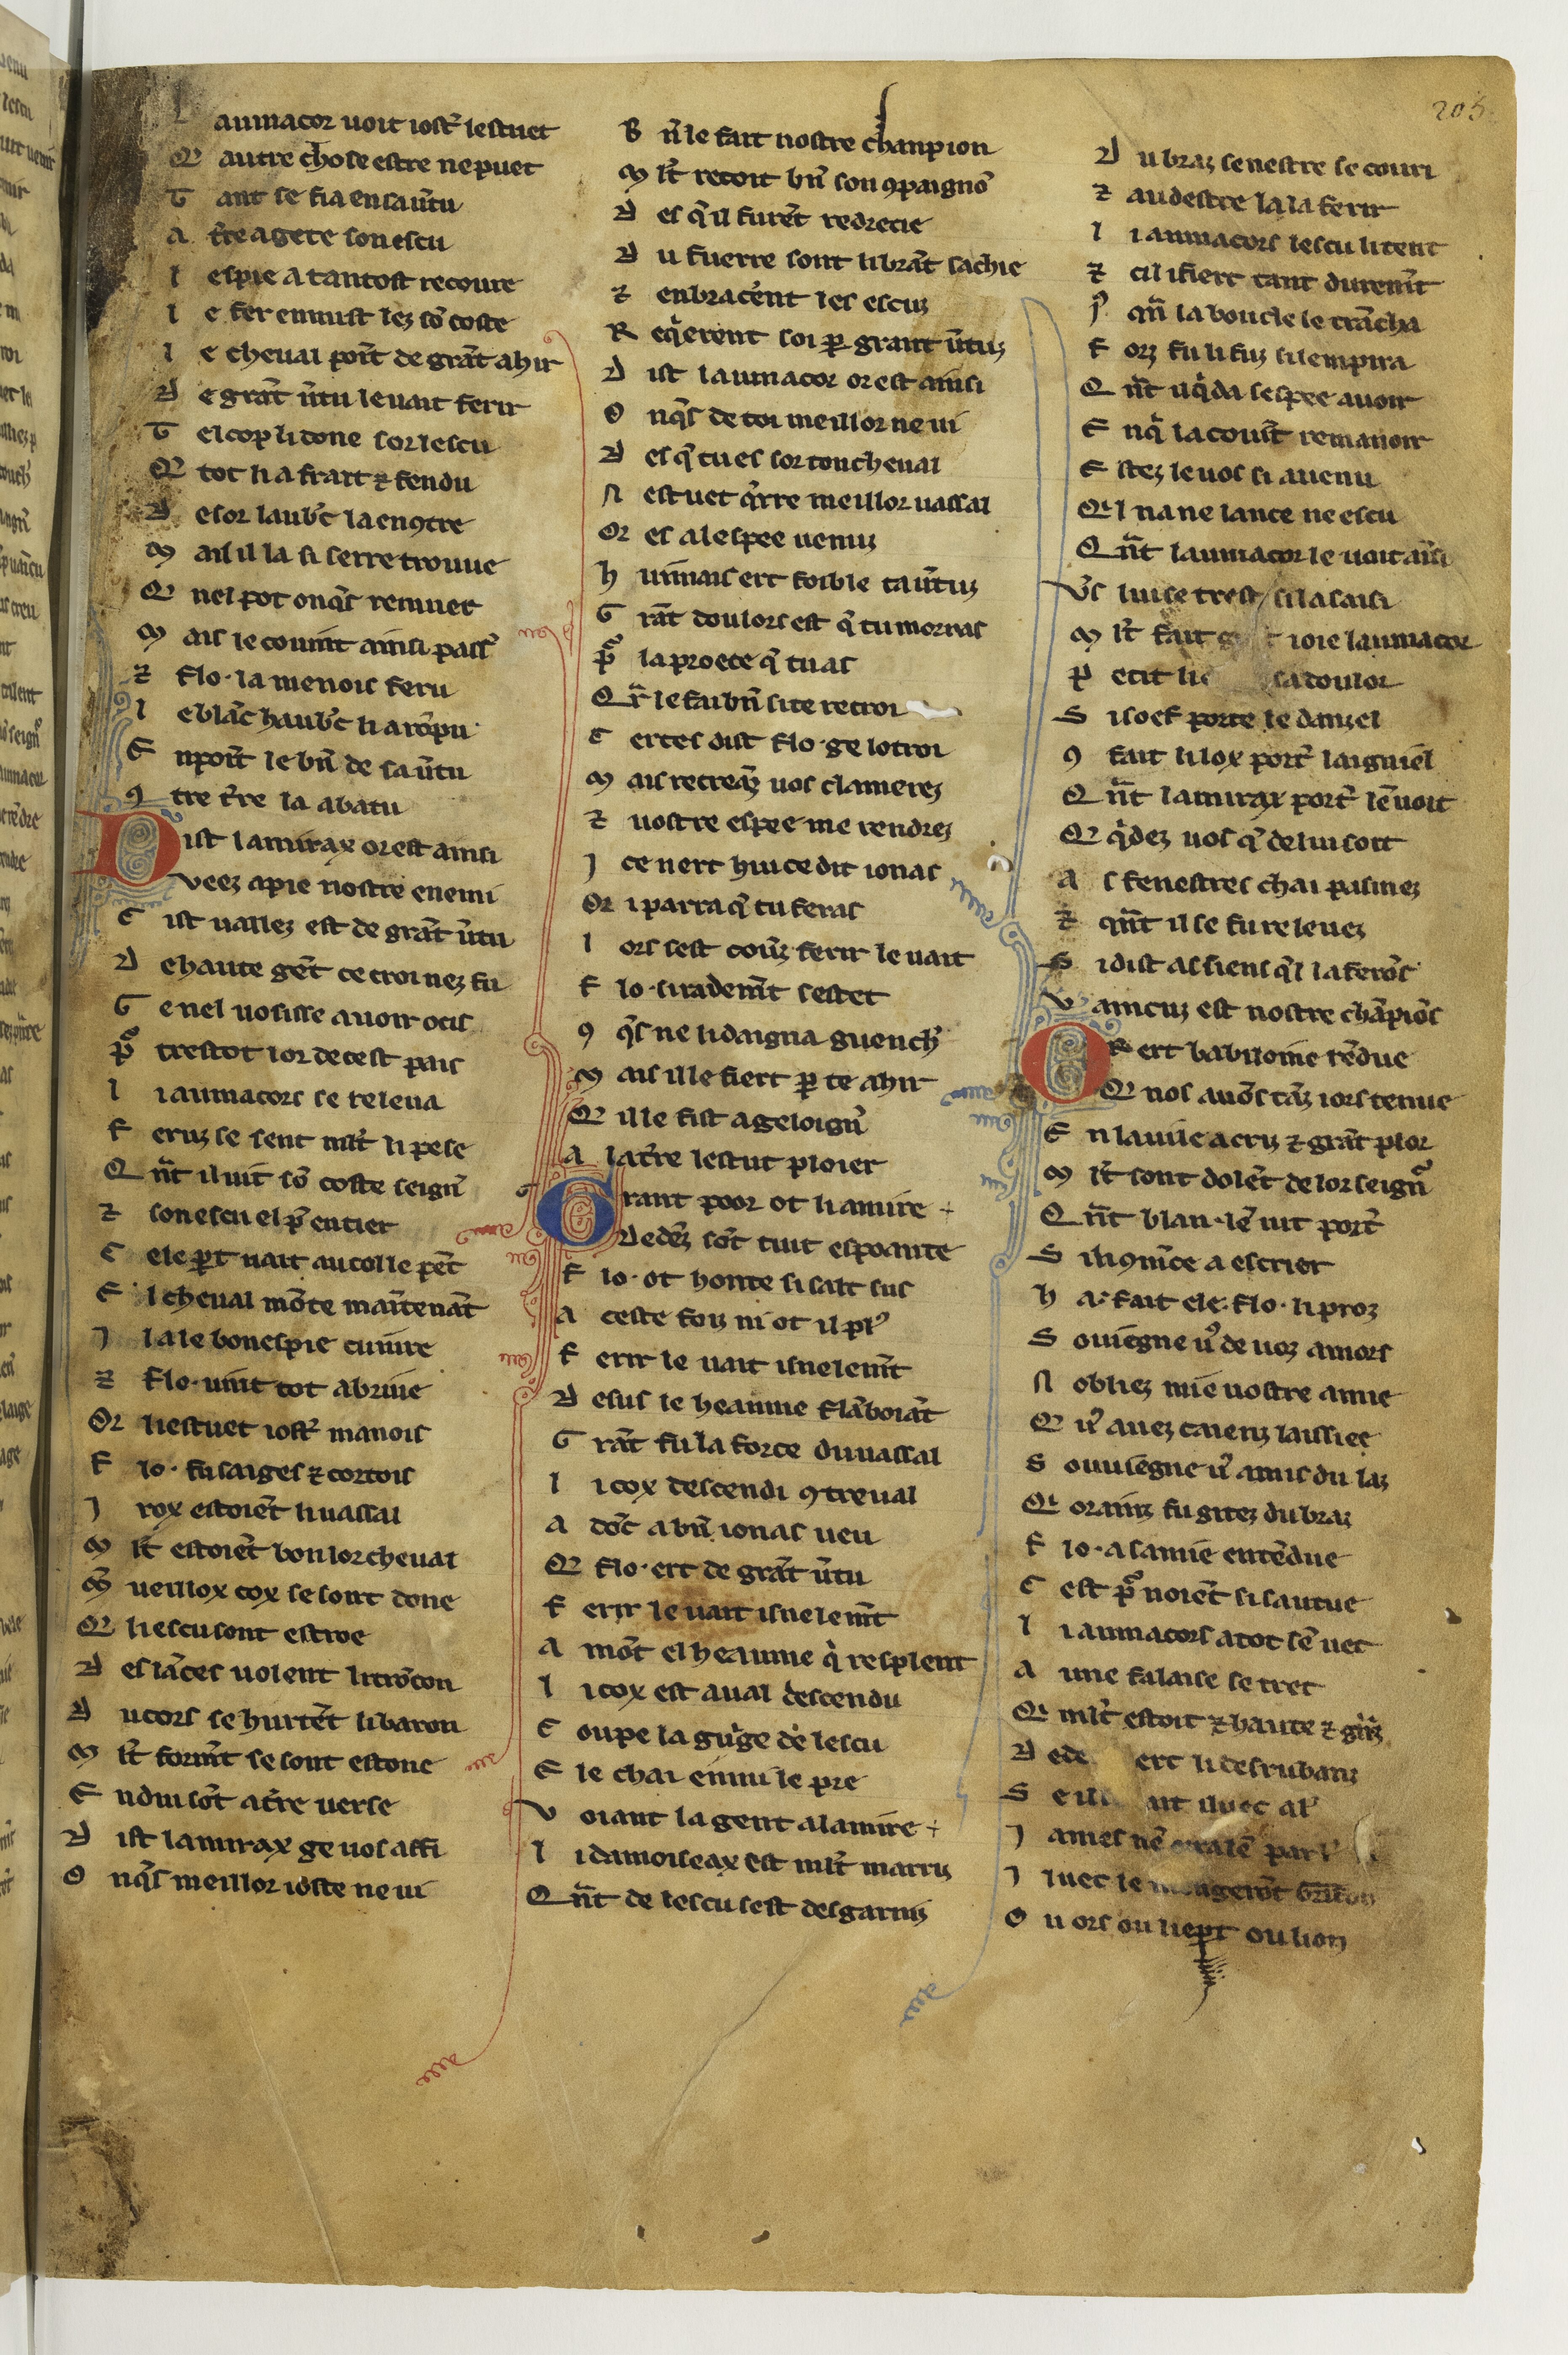 205
L aumacor uoit iost' lestuet
Q autre chose estre ne puet
T ant se fia en sa u̾tu
A t̾re a gete son escu
L espie a tantost recoure
L e fer en mist lez sō coste
L e cheual point de grāt ahir
D e grāt u̾tu le uait ferir
T el cop li done sor lescu
Q tot li a frait ⁊ fendu
D esor laub̾c la enꝯtre
M ais il la si serre trouue
Q nel pot onq̾s remuer
M ais le couint ainsi pass̾
⁊ flo · la menois feru
L e blāc haub̾c li a rōpu
E npoīt le bn̄ de sa u̾tu
ꝯ tre t̾re la abatu
D ist lamirax or est ainsi
Veez a pie nostre enemi
C ist uallez est de grāt u̾tu
D e haute gēt ce croi nez fu
G e nel uosisse auoir ocis
P̾ trestot lor de cest pais
L i aumacors se releua
F eruz se sent ml̾t li pese
Q n̄t il uit sō coste seign̾
⁊ son escu el p̄ entier
C ele p̱t uait au col le pēt
E l cheual mōte maītenāt
J la le bon espie cuiure
⁊ flo · uint tot abriue
Or li estuet iost̾ manois
F lo · fu saiges ⁊ cortois
J rox estoiēt li uassal
M l̾t estoiēt bon lor cheual
M̄ ueillox cox se sont done
Q li escu sont estroe
D es lāces uolent li trōcon
D u cors se hurtēt li baron
M l̾t form̄t se sont estone
E ndui sōt a t̾re uerse
D ist lamirax ge uos affi
O nq̾s meillor ioste ne ui
B n̄ le fait nostre chanpion
M l̾t recoit bn̄ son ꝯpaignō
D es q̾ il furēt redrecie
D u fuerre sont li brāt sachie
⁊ enbracēnt les escuz
R eq̾erent soi ꝑ grant u̾tuz
D ist laumacor or est ainsi
O nq̾s de toi meillor ne ui
D es q̾ tu es sor ton cheual
N estuet q̾rre meillor uassal
Or es a lespee uenuz
H uimais ert foible ta u̾tuz
G rāt doulors est q̾ tu morras
P̾ la proece q̾ tu as
Q̾r le fai bn̄ si te recroi
C ertes dist flo · ge lotroi
M ais recreāz uos clamerez
⁊ uostre espee me rendrez
J ce nert hui ce dit ionas
Or i parra q̾ tu feras
L ors sest couȝ ferir le uait
F lo · si rademīt sestet
ꝯ q̾s ne li daigna guench̾
M ais il le fiert ꝑ te ahir
Q il le fist ageloign̾
A la t̾re lestut ploier
G rant poor ot li amire
Dedēz sōt tuit espoante
F lo · ot honte si salt sus
A ceste foiz ni ot il pl̾
F erir le uait isnelem̄t
D esus le heaume flāboiāt
G rāt fu la force du uassal
L i cox descendi ꝯtreual
A dōc a bn̄ ionas ueu
Q flo · ert de grāt u̾tu
F erir le uait isnelem̄t
A mōt el heaume q̾ resplent
L i cox est aual descendu
C oupe la guige de lescu
E le chai enmi le pre
V oiant la gent a lamire
L i damoiseax est ml̾t marriz
Q n̄t de lescu sest desgarniz
D u braz senestre se couri
⁊ au destre la la ferir
L i aumacors lescu li tent
⁊ cil i fiert tant durem̄t
P̾ qm̄ la boucle le trācha
F orz fu li fuz si lempira
Q n̄t uq̾da sespee auoir
E nq̾ la couīt remanoir
E stez le uos si auenu
Qi l na ne lance ne escu
Q n̄t laumacor le uoit ainsi
V̾s lui se trest si la saisi
M l̾t fait joie laumacor
P etit li sa doulor
S i soef porte le danzel
ꝯ fait li lox port̾ laignēl
Q n̄t lamirax port̾ lē uoit
Q q̾dez uos q̾ de lui soit
A s fenestres chai pasmez
⁊ qn̄t il se fu releuez
S i dist as siens q̾l la ferōs
V aincuz est nostre chāpiōs
O R ert babiloine rēdue
Q nos auōs tāz iors tenue
E n la uile a criz ⁊ grāt plor
M l̾t sont dolēt de lor seign̾
Q n̄t blan · lē uit port̾
S i li ꝯmēce a escrier
H a · fait ele · flo · li proz
S ouiegne u̾ de uoz amors
N obliez mie uostre amie
Q u̾ auez caienz laissiee
S ouuiegne u̾ amis du laz
Qi orainz fu gitez du braz
F lo · a samie entēdue
C est p̾ noiēt si sautue
L i aumacors a tot sē uet
A une falaise se tret
Qi ml̾t estoit ⁊ haute ⁊ g̾nz
D ede ert li desrubanz
S e il
J ames nē
J luec le mangerōt
O u ors ou liep̱t ou lion